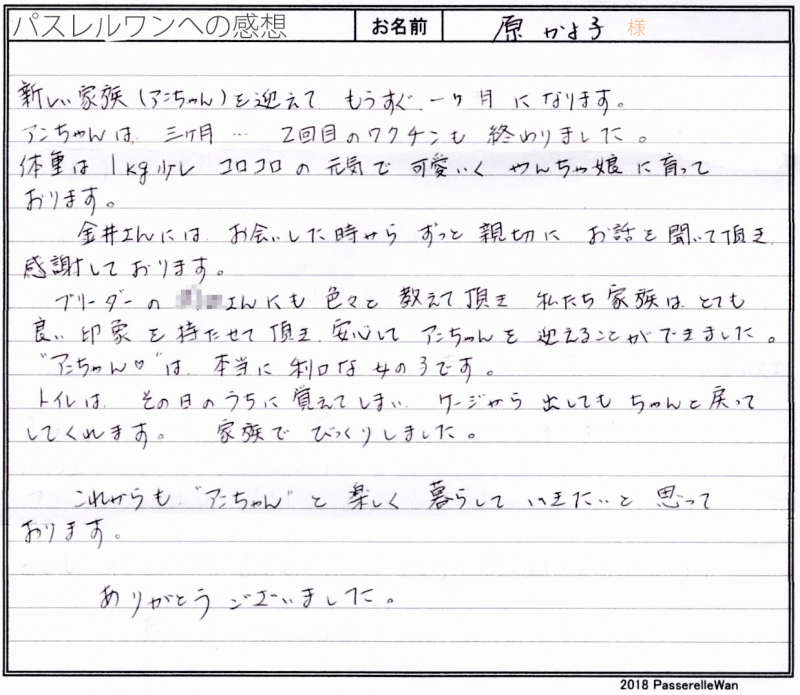 パスレルワンへの感想 お名前 原 かよ子 様
新しい家族(アンちゃん)を迎えて もうすぐ 一ヶ月 になります。
アンちゃんは 三ヶ月… 2回目のワクチンも 終わりました。
体重は 1kg少し コロコロの元気で 可愛いく やんちゃ娘に育って
おります。
金井さんには、お会いした時から ずっと 親切に お話を聞いて頂き
感謝しております。
ブリーダーの さんにも 色々と 教えて頂き 私たち家族は、とても
良い 印象を持たせて頂き、安心して アンちゃんを 迎えることができました。
"アンちゃん♡"は、本当に 利口な 女の子です。
トイレは、その日のうちに 覚えてしまい、ケージから 出しても ちゃんと戻って
してくれます。 家族で びっくりしました。
これからも、"アンちゃん"と 楽しく 暮らして いきたいと 思って
おります。
ありがとう ございました。
2018 PasserelleWan